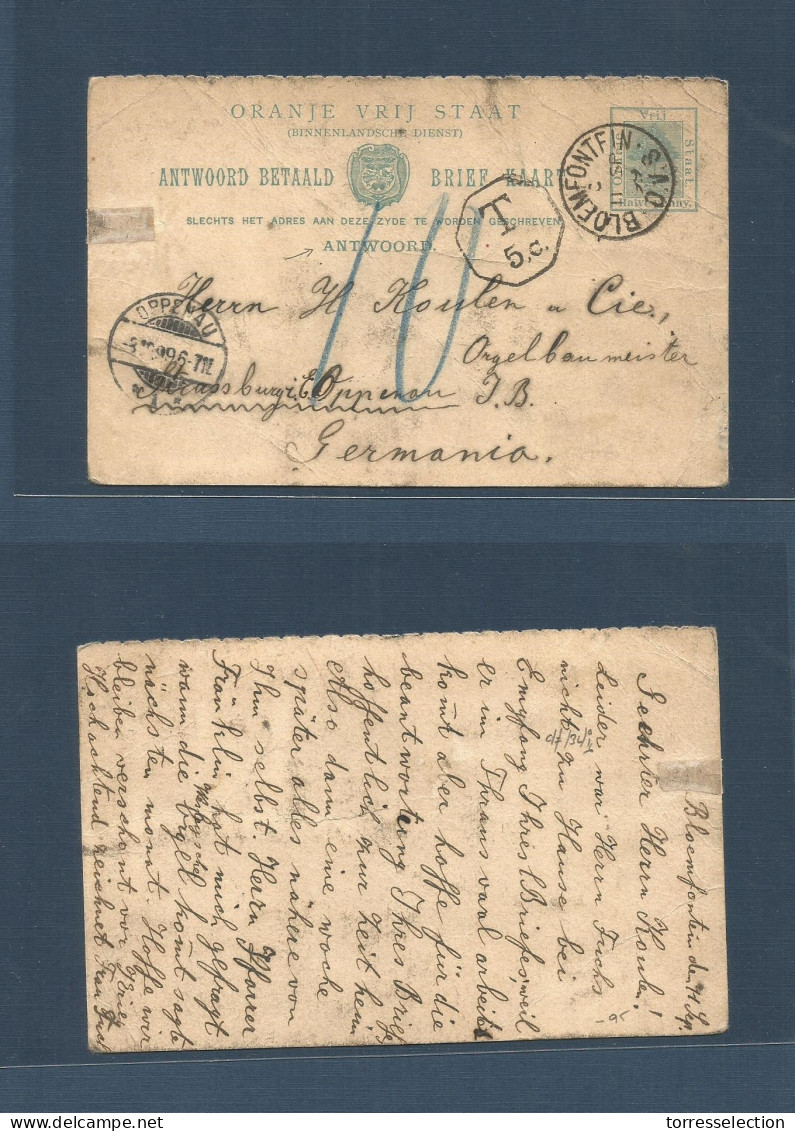 ORANJE VRIJ STAAT
(BINNENLANDSCHE DIENST)
ANTWOORD BETAALD BRIEF KAART
SLECHTS HET ADRES AAN DEZE ZYDE TE WORDEN GESCHREVEN
ANTWOORD.
Vrij
Staat
BLOEMFONTEIN. O.V.S.
T
5.c.
10
Herrn H Koulen u Cie,
Orgelbaumeister
Strassburg i. E. Oppenau I. B.
Germania.
OPPENAU
Bloemfontein den 11 Sep.
Geehrter Herrn Koulen!
Leider war Herrn Fuchs
nicht zu Hause bei
Empfang Ihres Briefes, weil
er im Thransvaal arbeitet
komt aber hoffe für die
beantwortung Ihres Briefes
hoffentlich zur Zeit heim
Also dann eine woche
später alles nähere von
Ihm selbst. Herrn Pfarrer
Fränklin hat mich gefragt
wann die Orgel komt sagte
nächsten monnt. Hoffe wir
bleiben verschont vor Krieg
Hochachtend zeichnet Frau Fuchs
torresselection